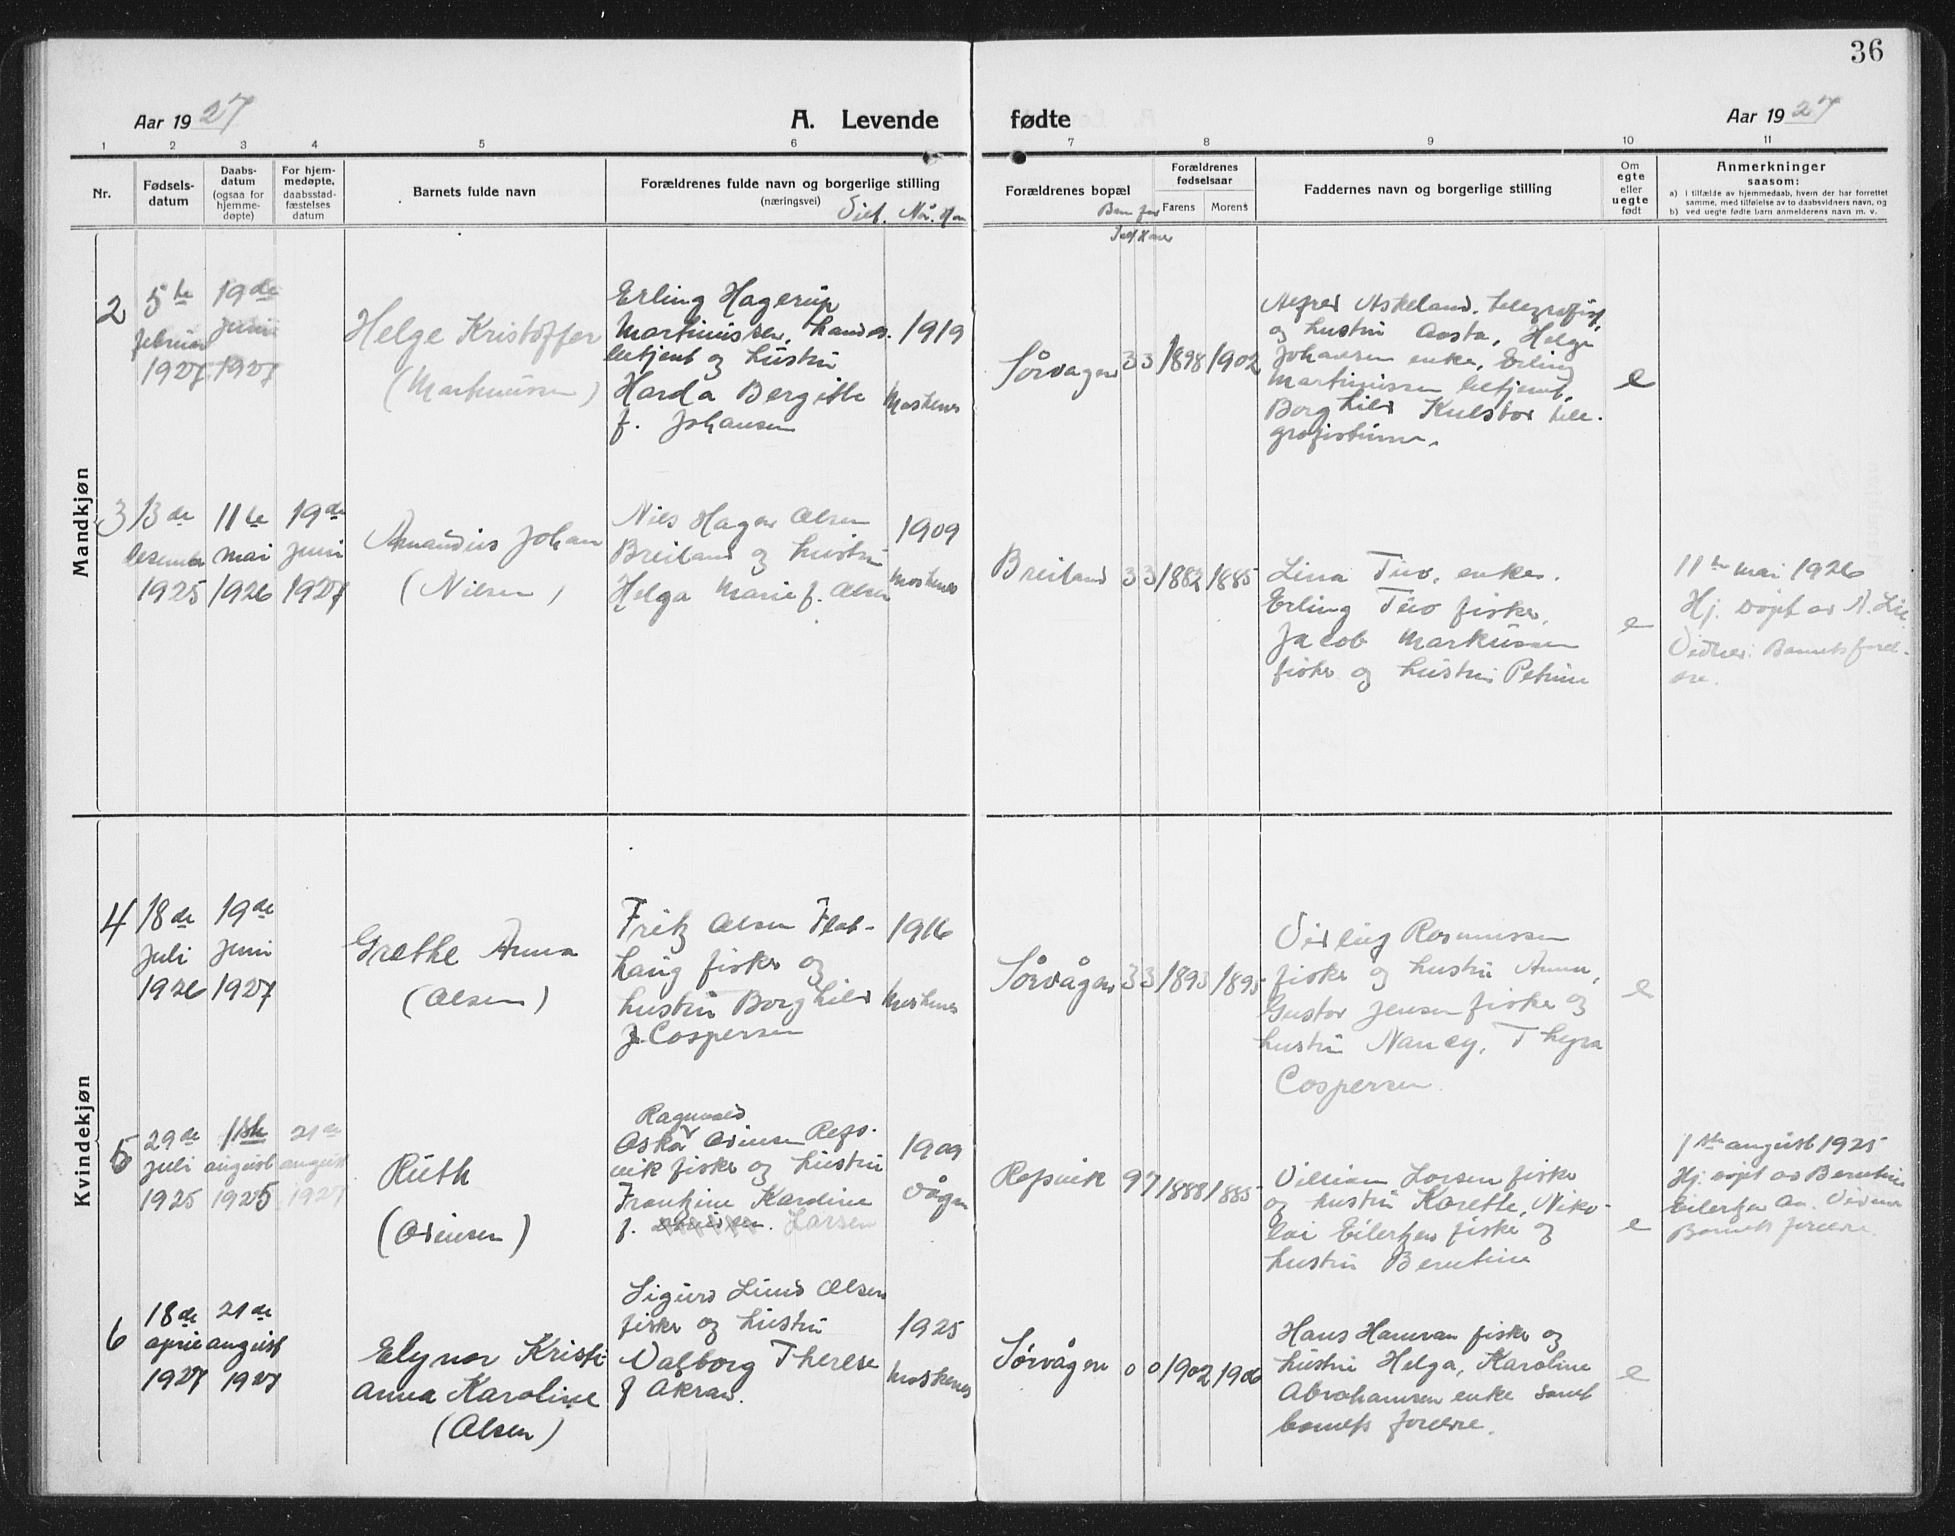 36
Aar 1927
A. Levende
fødte
Aar 1927
1 2 3 4 5 6 7 8 9 10 11
Nr.
Fødsels-
datum
Daabs-
datum
(ogsaa for
hjemme-
døpte)
For hjem-
medøpte,
daabsstad-
fæstelses
datum
Barnets fulde navn
Forældrenes fulde navn og borgerlige stilling
(næringsvei)
Viet. Når. Hvor
Forældrenes bopæl
Forældrenes
fødselsaar
Farens Morens
Faddernes navn og borgerlige stilling
Om
egte
eller
uegte
født
Anmerkninger
saasom:
a) i tilfælde av hjemmedaab, hvem der har forrettet
samme, med tilføielse av to daabsvidners navn, og
b) ved uegte fødte barn anmelderens navn m. v.
Mandkjøn
2
5te
februar
1927
19de
juni
1927
Helge Kristoffer
(Martinussen)
Erling Hagerup
Martinussen, handels.
betjent og hustru
Harda Bergitte
f. Johansen
1919
Moskenes
Sørvågen
3 3
1898 1902
Alfred Askeland, telegrafist,
og hustru Aasta, Helga
Johansen enke, Erling
Martinussen betjent,
Borghild Kulstad tele-
grafistinne.
e
3
13de
desember
1925
11te
mai
1926
19de
juni
1927
Amandus Johan
(Nilsen)
Nils Hagen Olsen
Breiland og hustru
Helga Marie f. Olsen
1909
Moskenes
Breiland
3 3
1882 1885
Lina Tuv, enke.
Erling Tuv fisker,
Jacob Markussen
fisker og hustru Petrine
e
11te mai 1926
Hj. døpt av N. Lie.
Vidner: Barnets foreld-
re.
Kvindekjøn
4
18de
juli
1926
19de
juni
1927
Grethe Anna
(Olsen)
Fritz Olsen Flat-
haug fisker og
hustru Borghild
f. Caspersen
1916
Moskenes
Sørvågen
3 3
1893 1895
Rasmussen
fisker og hustru Anna,
Gustav Jensen fisker og
hustru Nancy, Thyra
Caspersen
e
5
29de
juli
1925
1ste
august
1925
21de
august
1927
Ruth
(Odinsen)
Ragnvald
Oskar Odinsen Refs-
vik fisker og hustru
Frantzine Kardine
f. Larsen
1909
Vågan
Refsvik
9 7
1888 1885
Villiam Larsen fisker
og hustru Karette, Niko-
lai Eilertsen fisker og
hustru Berntine
e
1ste august 1925
Hj. døpt av Berntine
Eilertsen Aa. Vidner
Barnets foreldre
6
18de
april
1927
21de
august
1927
Elynor Kristi-
anna Karoline
(Olsen)
Sigurd Lund Olsen
fisker og hustru
Valborg Therese
f Akran.
1925
Moskenes
Sørvågen
0 0
1902 1906
Hans Hamran fisker og
hustru Helga, Karoline
Abrahamsen enke samt
barnets foreldre.
e